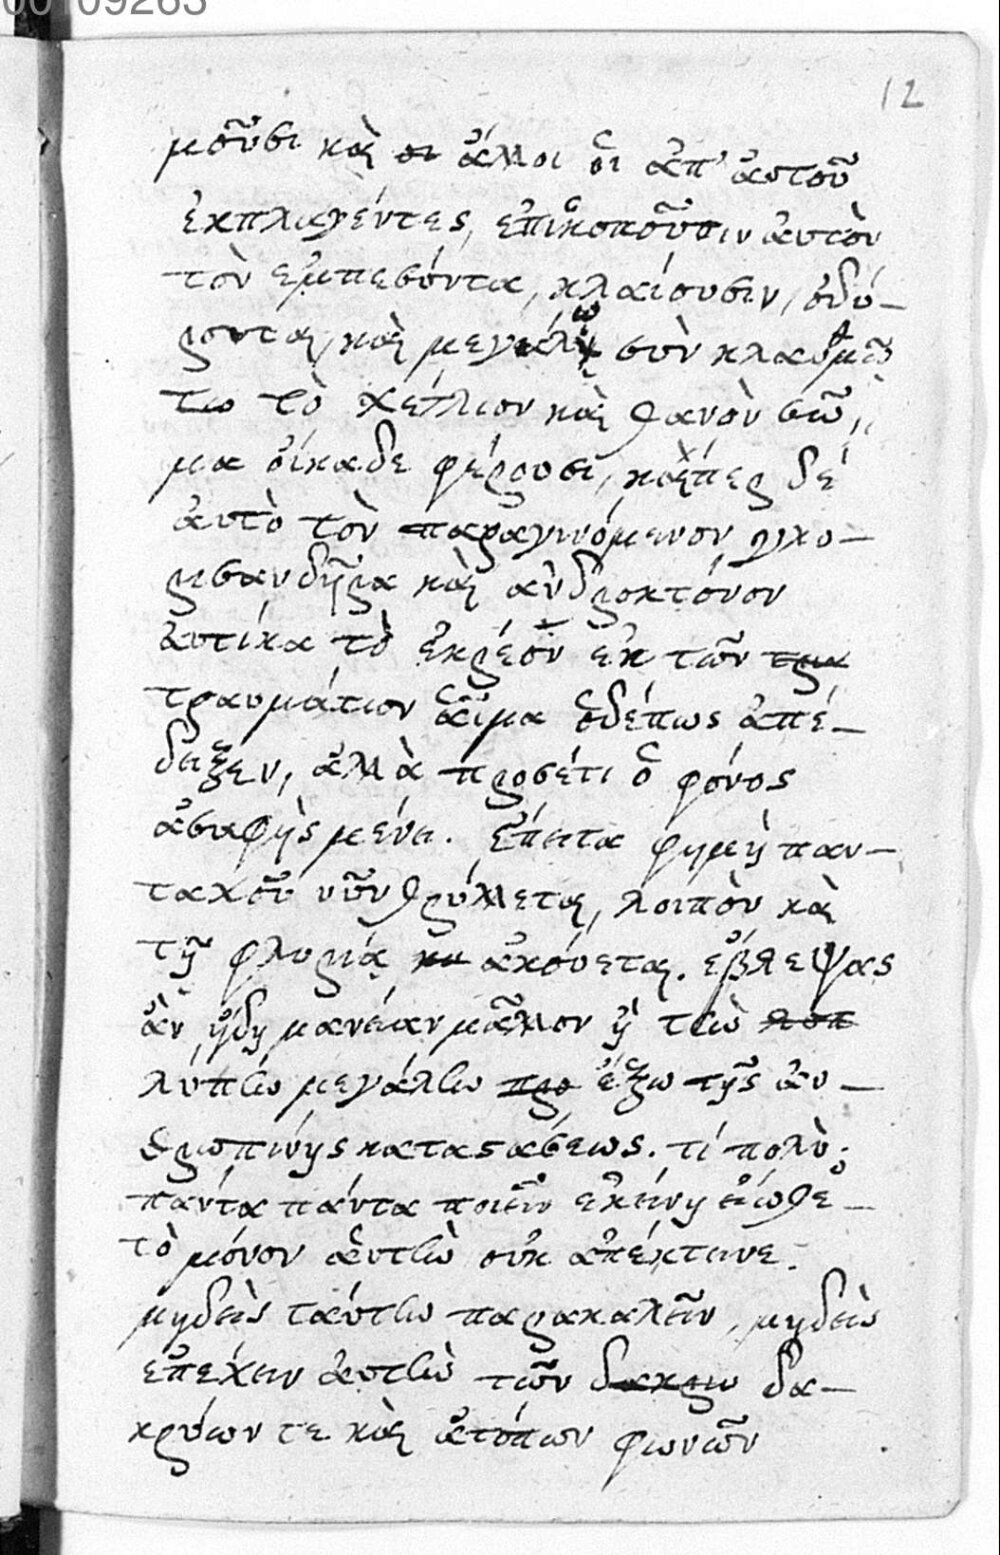 00109263
12
μοῦσι καὶ οι ἄλλοι οἱ ἀπ' ἀυτοῦ
ἐκπλαγέντες, ἐπισκοποῦσιν ἀυτὸν
τὸν ἐμπεσόντα, κλαίουσιν, ὀδύ-
ρονται, καὶ μεγάλῳ σὺν κλαυθμῶ
τω τὸ χέτλιον καὶ θανὸν σῶ,,
μα ὀίκαδε φέρουσι, καὶπερ δὲ
ἀυτὸ τὸν παραγινόμενον
καὶ ἀνδροκτόνον
ἀυτίκα τὸ ἐκρέον ἐκ τῶν τρα
τραυμάτιον ἇιμα ὀδέπως ἀπέ-
δειξεν, ἀλλὰ προσέτι ὁ φόνος
ἀσαφὴς μένει. ἔπειτα φημὴ παν-
ταχοῦ νῦν θρύλλεται, λοιπὸν καὶ
τῇ φλυρίᾳ και ἀκόυεται. ἔβλεψας
ἂν ἤδη μανείαν μᾶλλον ἢ τὴν λοπ
λύπην μεγάλην προ ἔξω τῆς ἀν-
θρωπίνης καταστάσεως. τί πολὺ;
πάντα πάντα ποιεῖν ἐκείνη ἐίωθε-
τὸ μόνον ἀυτὴν οὐκ ἀπέκτεινε.
μηδεὶς ταύτην παρακαλεῖν, μηδεὶς
ἐπέχειν ἀυτὴν τῶν δακρυ δα-
κρύων τε καὶ ἀτόπων φωνῶν